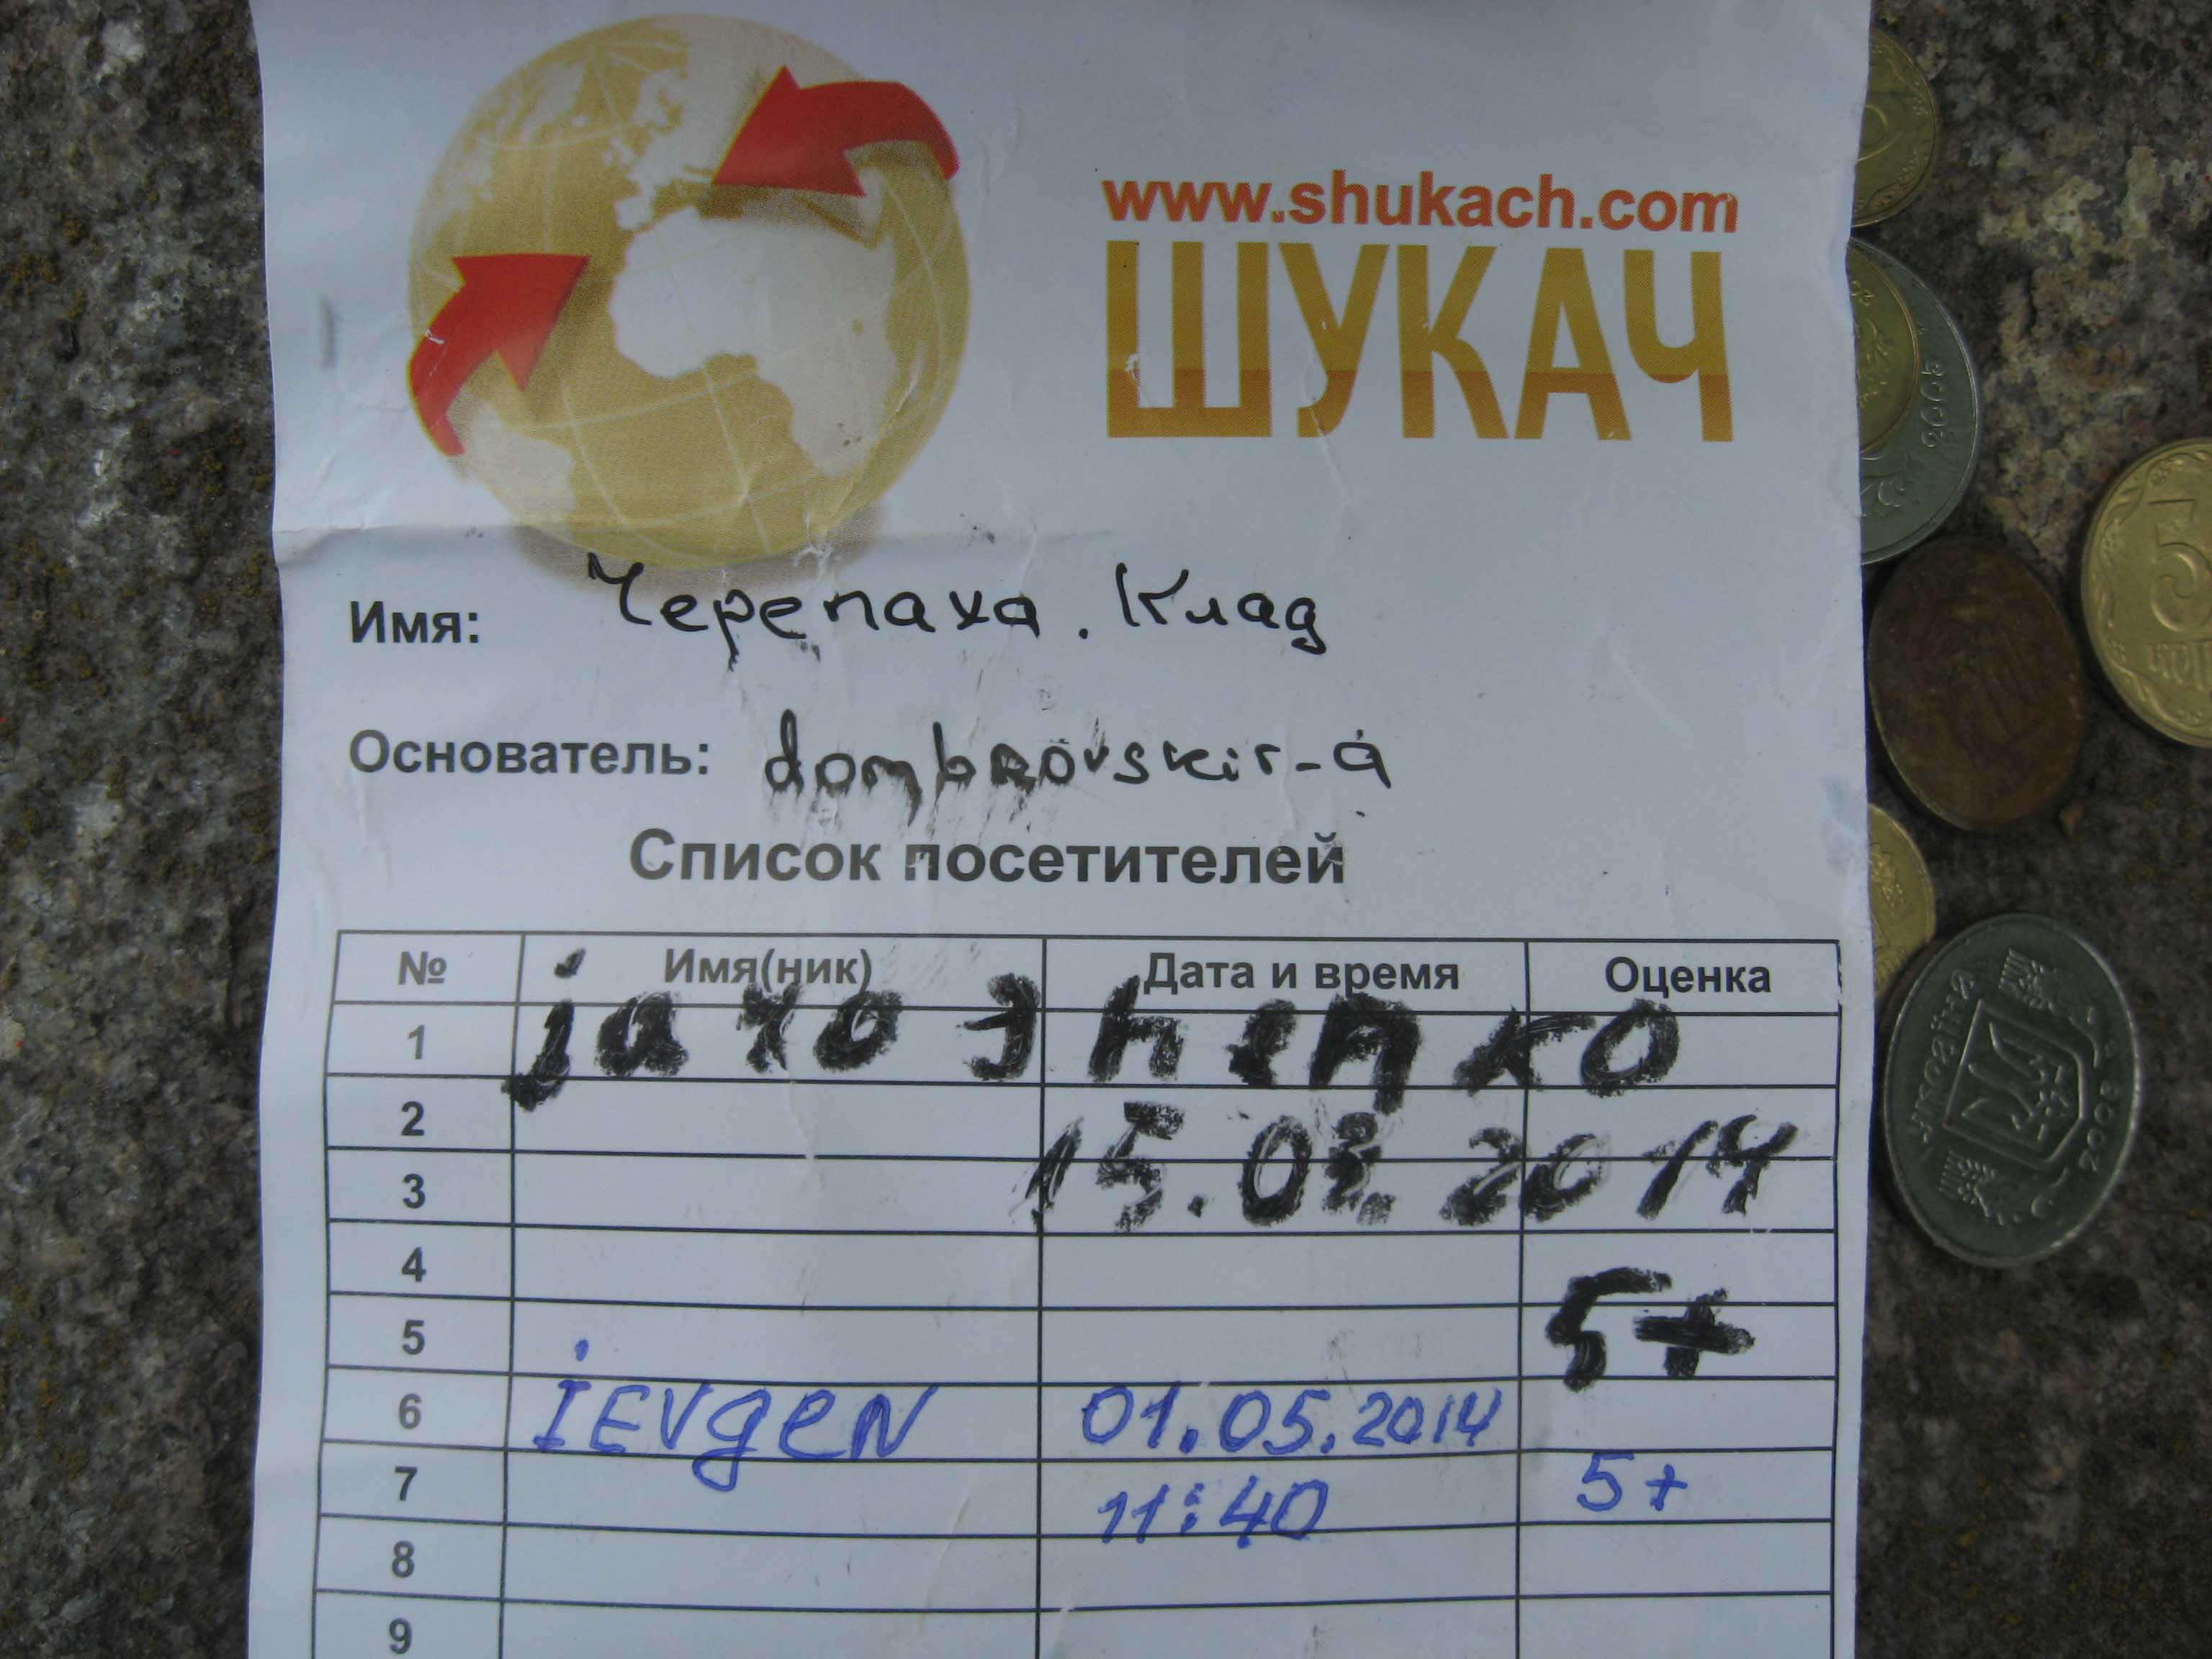 www.shukach.com
ШУКАЧ
Имя: Черепаха. Клад
Основатель: dombrovskir-a
Список посетителей
№ Имя(ник) Дата и время Оценка
1
2 15.03.2014
3
4
5 5+
6 IEVgEN 01.05.2014
7 11:40 5+
8
9
2008
5